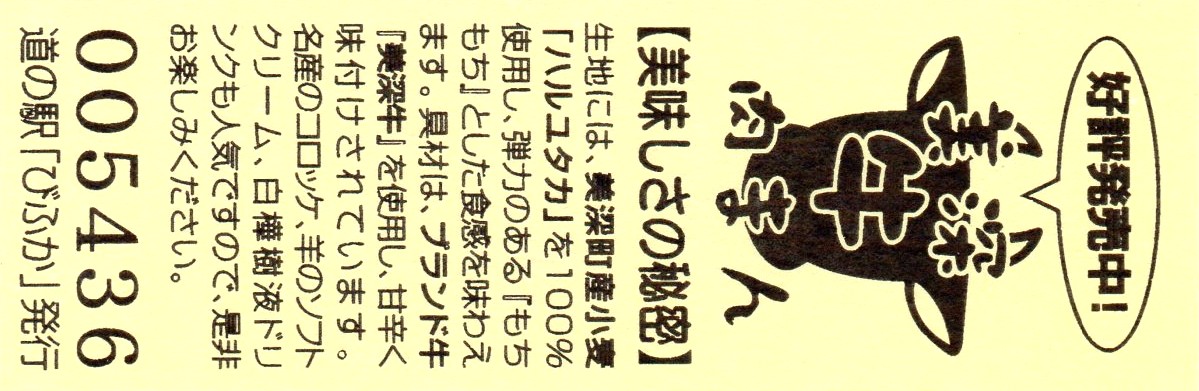 好評発売中!
美深
牛
肉まん
【美味しさの秘密】
生地には、美深町産小麦
「ハルユタカ」を100%
使用し、弾力のある『もち
もち』とした食感を味わえ
ます。具材は、ブランド牛
『美深牛』を使用し、甘辛く
味付けされています。
名産のコロッケ、羊のソフト
クリーム、白樺樹液ドリ
ンクも人気ですので、是非
お楽しみください。
005436
道の駅「びふか」発行